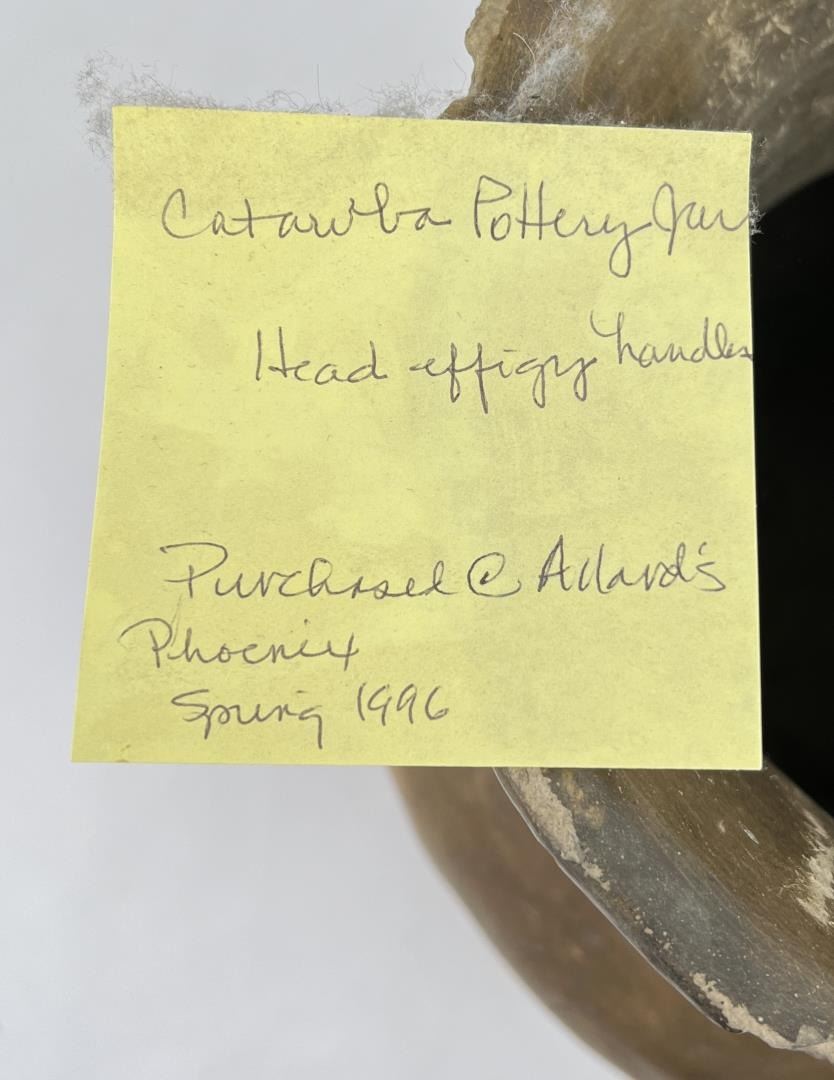 Catawba Pottery Jar
Head effigy handles
Purchased @ Allard's
Phoenix
Spring 1996